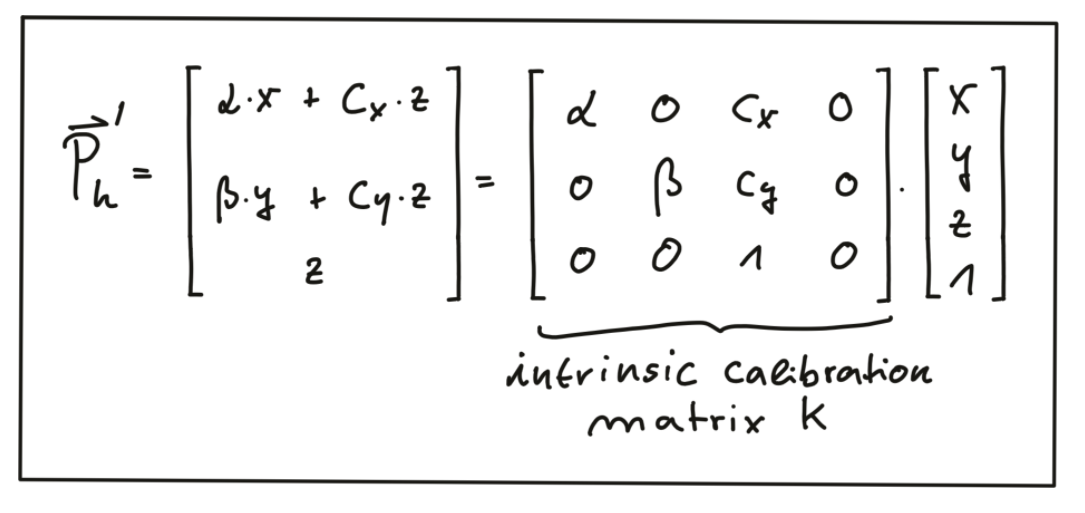 P⃗ₕ′ = [ α·x + Cₓ·z ; β·y + C_y·z ; z ] = [ α 0 Cₓ 0 ; 0 β C_y 0 ; 0 0 1 0 ] · [ x ; y ; z ; 1 ]
intrinsic calibration
matrix K